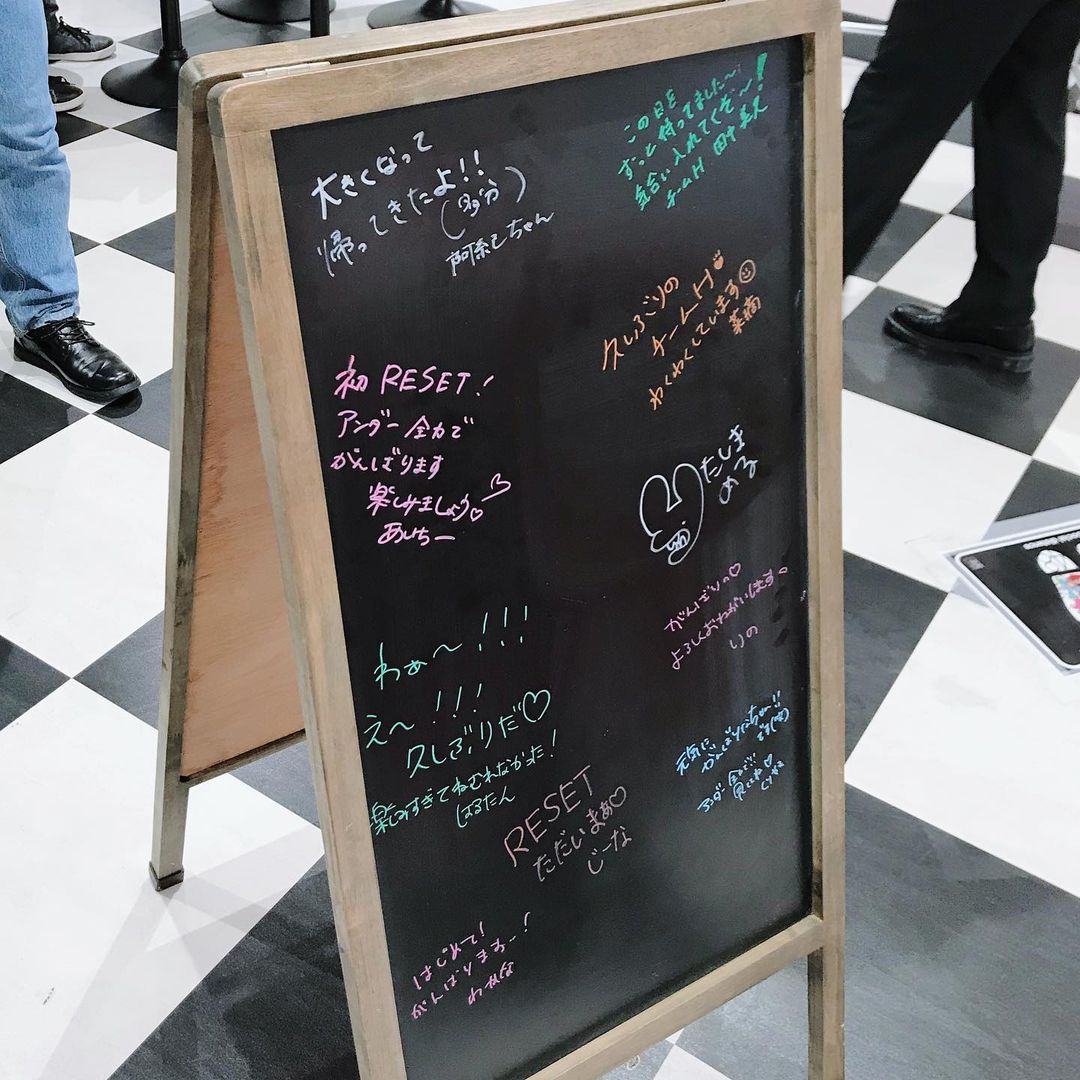 大きくなって
帰ってきたよ!!
(多分)
阿弥ちゃん
初RESET!
アンダー全力で
がんばります
楽しみましょう♡
あいちー
わぁ〜!!!
え〜!!!
久しぶりだ♡
楽しみすぎてねむれなかった!
はるたん
RESET
ただいまぁ♡
じーな
はじめて!
がんばりまおー!
わかな
この日を
ずっと待ってました〜!
気合い入れてくぞ〜!
チームH 田中美久
久しぶりの
チームH
わくわくしています
菜摘
たしま
める
がんばりの♡
よろしくおねがいします。
りの
元気に
がんばりたっちゃー!!
です(笑)
アンダー全力で!!